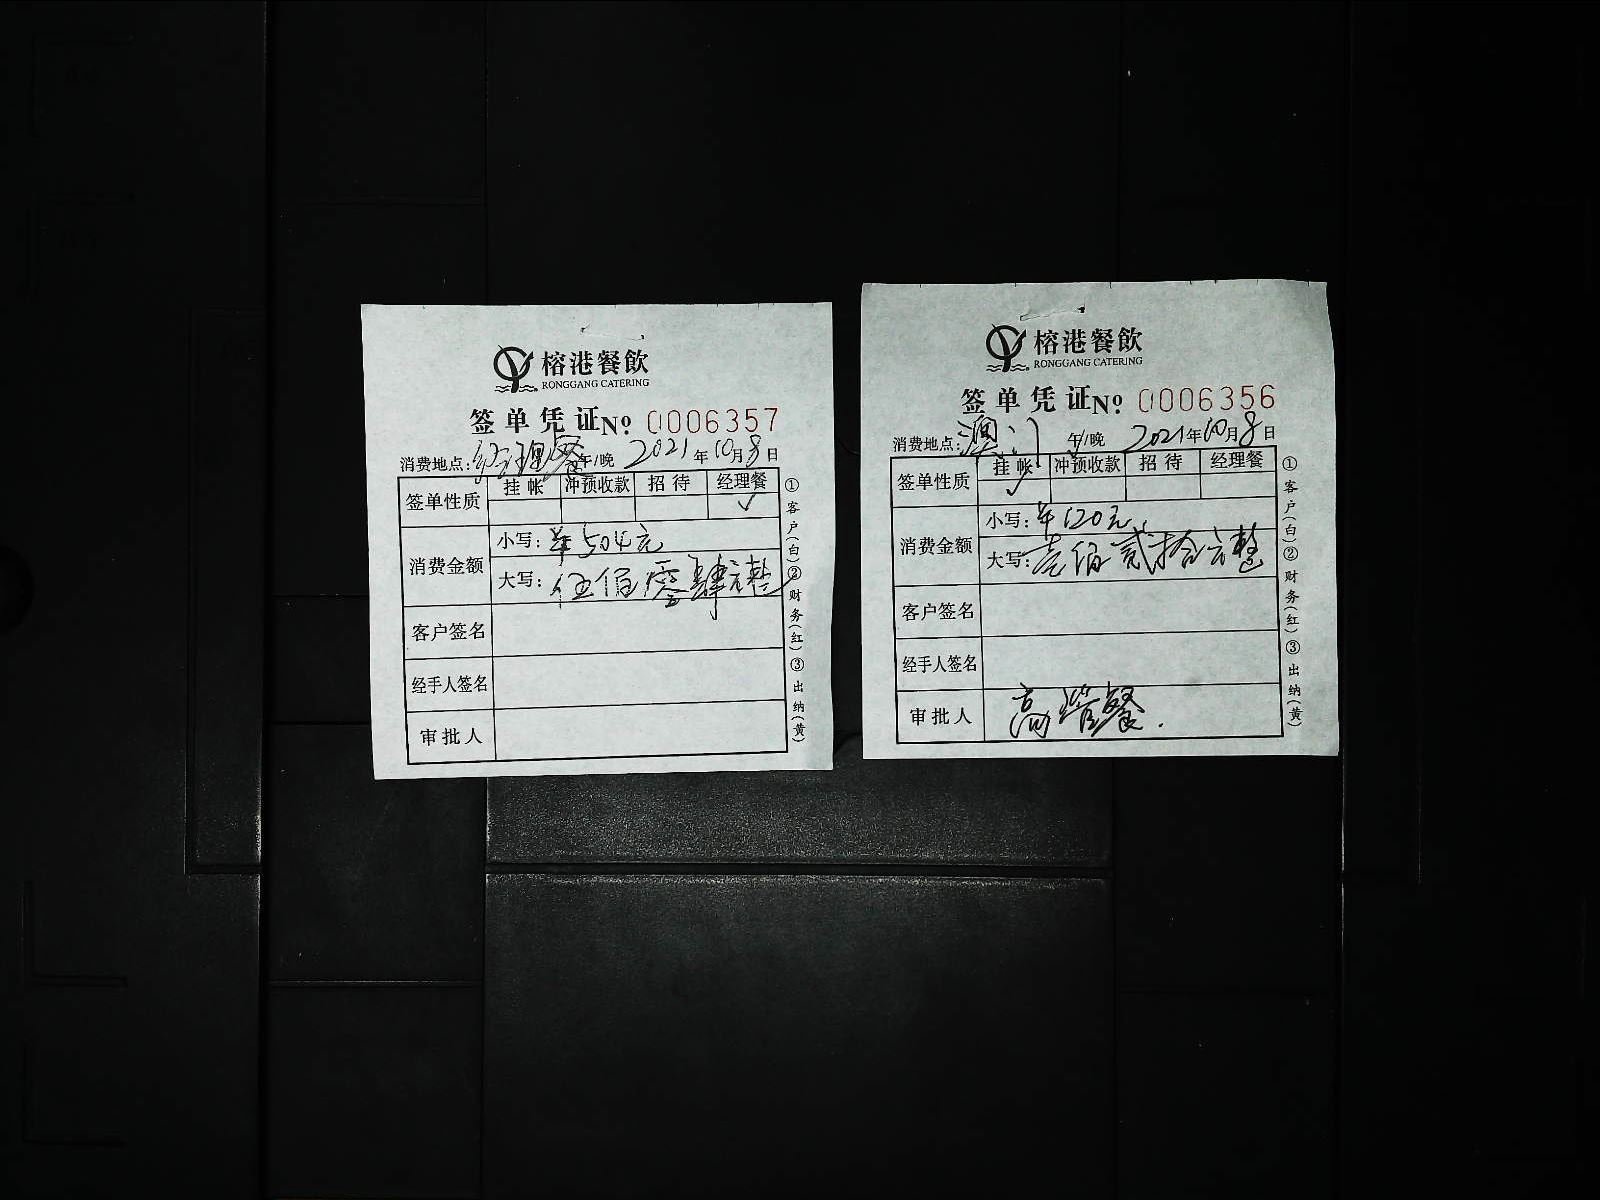 榕港餐飲
RONGGANG CATERING
签单凭证 No. 0006357
消费地点：经理餐 午/晚 2021年10月8日
签单性质 挂帐 冲预收款 招待 经理餐
✓
消费金额 小写：¥504元
大写：伍佰零肆元整
客户签名
经手人签名
审批人
①客户(白)②财务(红)③出纳(黄)
榕港餐飲
RONGGANG CATERING
签单凭证 No. 0006356
消费地点：澳门 午/晚 2021年10月8日
签单性质 挂帐 冲预收款 招待 经理餐
✓
消费金额 小写：¥120元
大写：壹佰贰拾元整
客户签名
经手人签名
审批人 高管餐.
①客户(白)②财务(红)③出纳(黄)